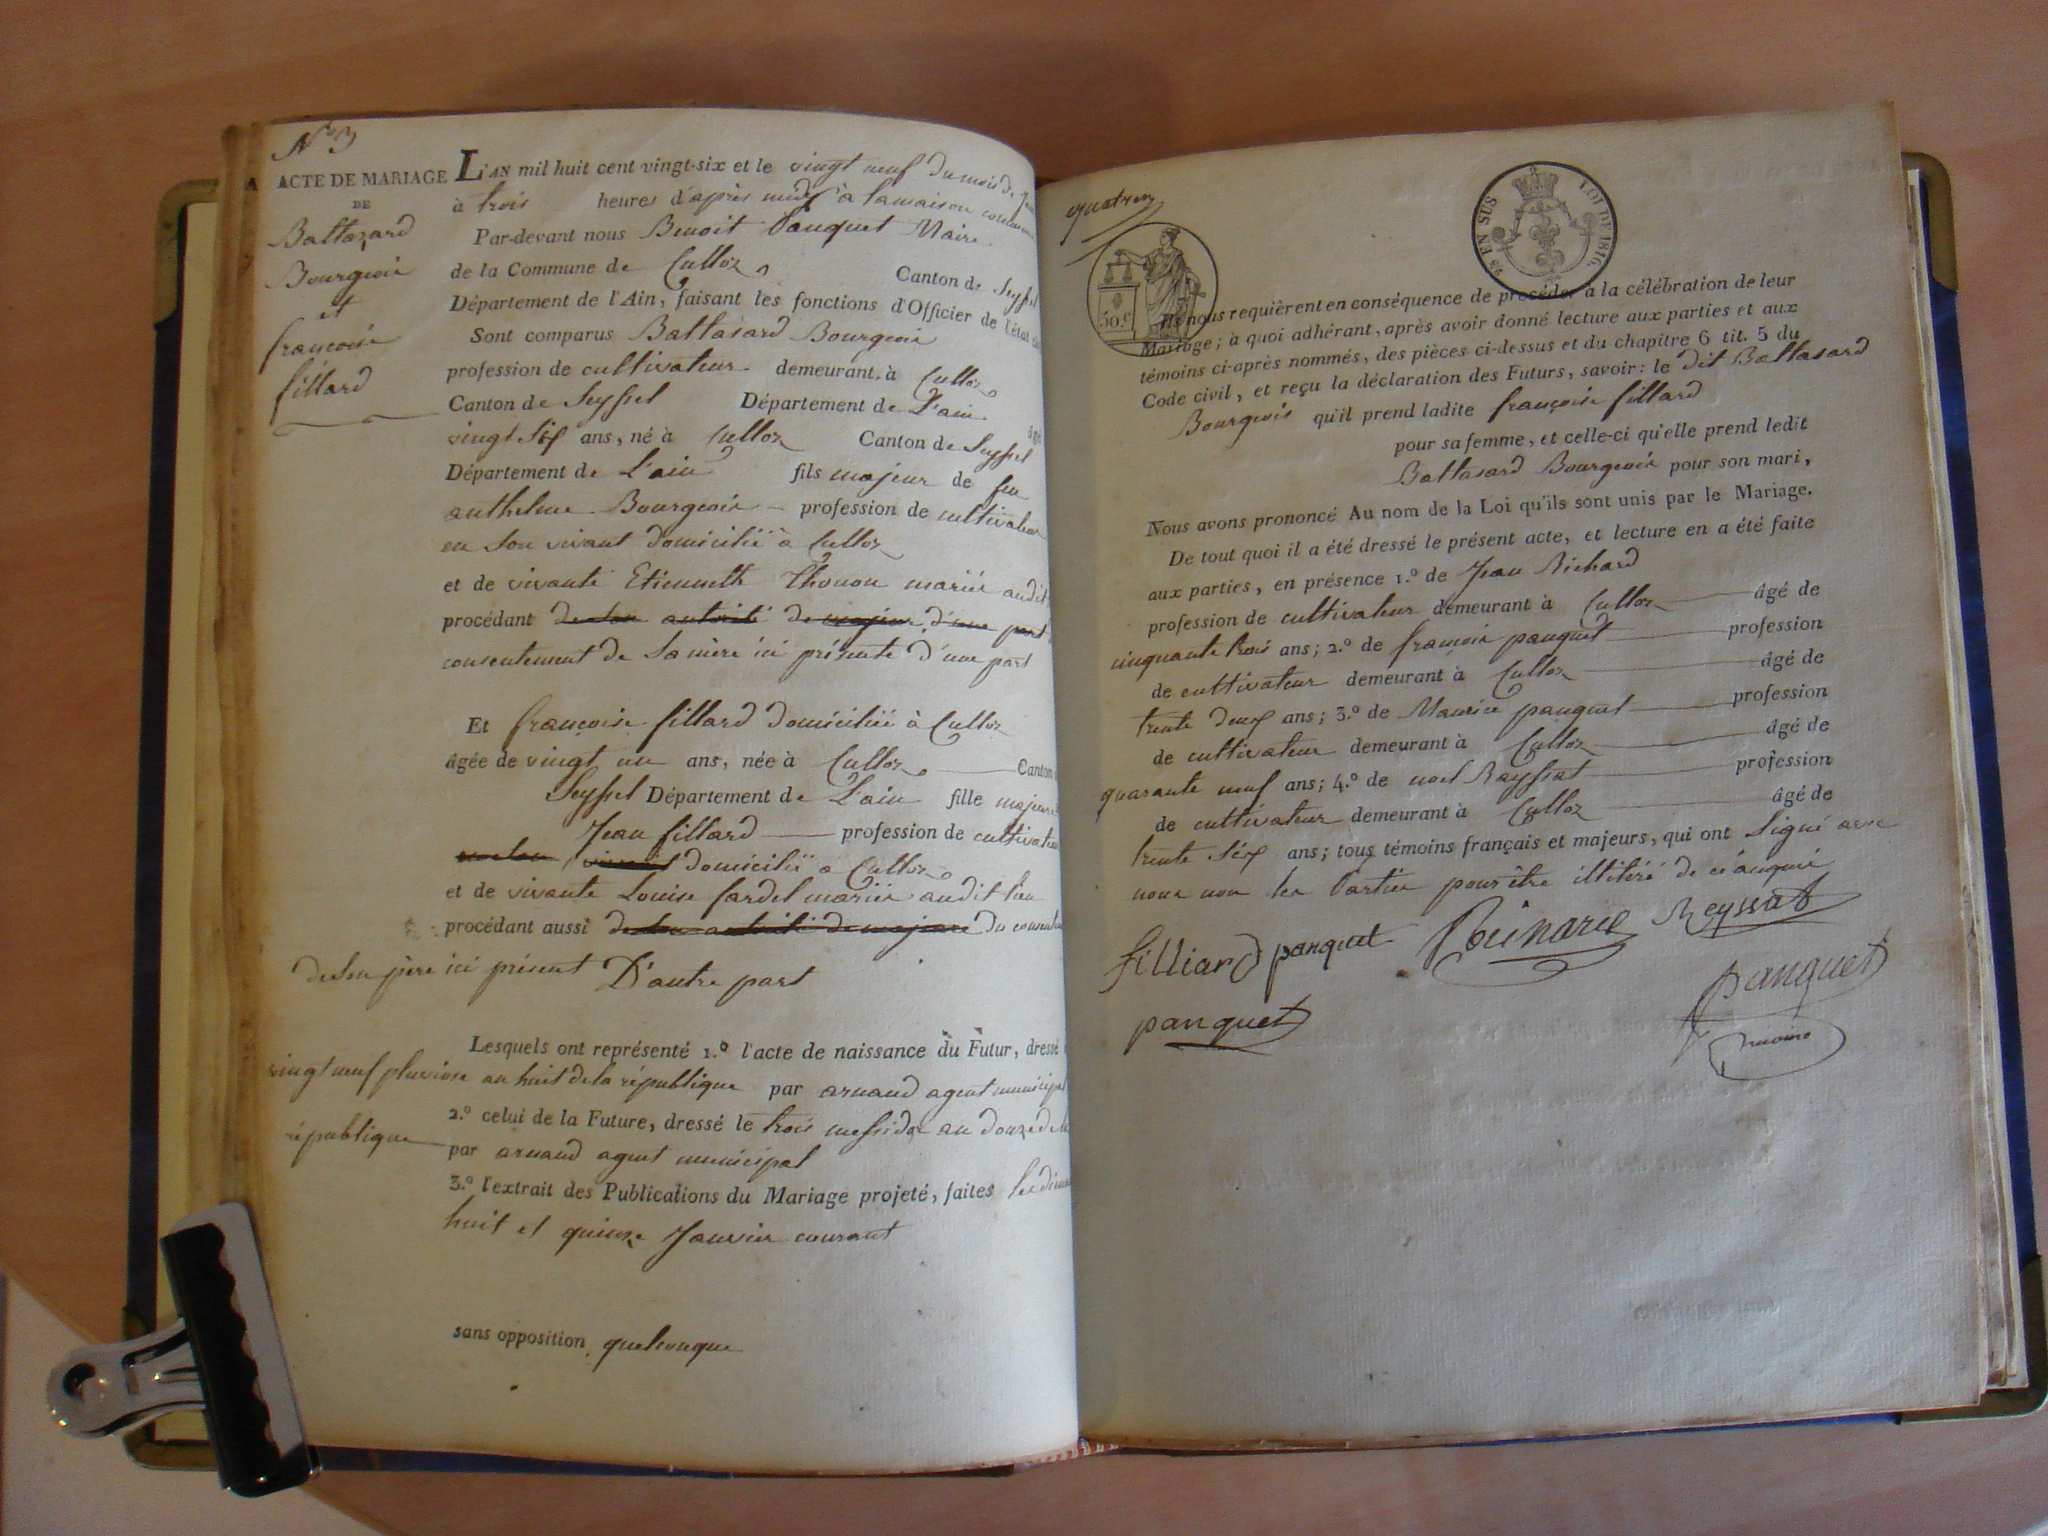 N° 3
ACTE DE MARIAGE
DE
Baltazard
Bourgeois
et
françoise
fillard
L'AN mil huit cent vingt-six et le vingt neuf du mois de
à trois heures d'après midy à la maison commune
Par-devant nous Benoit Panquet Maire
de la Commune de Culloz Canton de Seyssel
Département de l'Ain, faisant les fonctions d'Officier de l'état
Sont comparus Baltasard Bourgeois
profession de cultivateur demeurant à Culloz
Canton de Seyssel Département de L'ain âgé
vingt Six ans, né à Culloz Canton de Seyssel
Département de L'ain fils majeur de feu
anthelme Bourgeois profession de cultivateur
en son vivant domicilié à Culloz
et de vivante Etiennette Thonon mariés audit
procédant de son autorité de majeur d'une part
consentement de sa mère ici présente d'une part
Et françoise fillard domiciliée à Culloz
âgée de vingt un ans, née à Culloz Canton
Seyssel Département de L'ain fille majeure
Jean fillard profession de cultivateur
domicilié à Culloz
et de vivante Louise fardel mariés audit lieu
procédant aussi de son autorité de majeure du
de son père ici présent D'autre part
Lesquels ont représenté 1.° l'acte de naissance du Futur, dressé
vingt neuf pluviose an huit de la république par arnaud agent municipal
2.° celui de la Future, dressé le trois messidor an douze de la
république par arnaud agent municipal
3.° l'extrait des Publications du Mariage projeté, faites les
huit et quinze Janvier courant
sans opposition quelconque
quatre
50.c
EN SUS
LOI DE 1816.
Ils nous requièrent en conséquence de procéder à la célébration de leur
Mariage; à quoi adhérant, après avoir donné lecture aux parties et aux
témoins ci-après nommés, des pièces ci-dessus et du chapitre 6 tit. 5 du
Code civil, et reçu la déclaration des Futurs, savoir: le dit Baltasard
Bourgeois qu'il prend ladite françoise fillard
pour sa femme, et celle-ci qu'elle prend ledit
Baltasard Bourgeois pour son mari,
Nous avons prononcé Au nom de la Loi qu'ils sont unis par le Mariage.
De tout quoi il a été dressé le présent acte, et lecture en a été faite
aux parties, en présence 1.° de Jean Richard
profession de cultivateur demeurant à Culloz âgé de
cinquante trois ans; 2.° de françois panquet profession
de cultivateur demeurant à Culloz âgé de
trente deux ans; 3.° de Maurice panquet profession
de cultivateur demeurant à Culloz âgé de
quarante neuf ans; 4.° de noel Rayssat profession
de cultivateur demeurant à Culloz âgé de
trente Six ans; tous témoins français et majeurs, qui ont Signé avec
nous non les Parties pour être illitéré de ce enquis
filliard panquet Reyssat
panquet panquet
maire